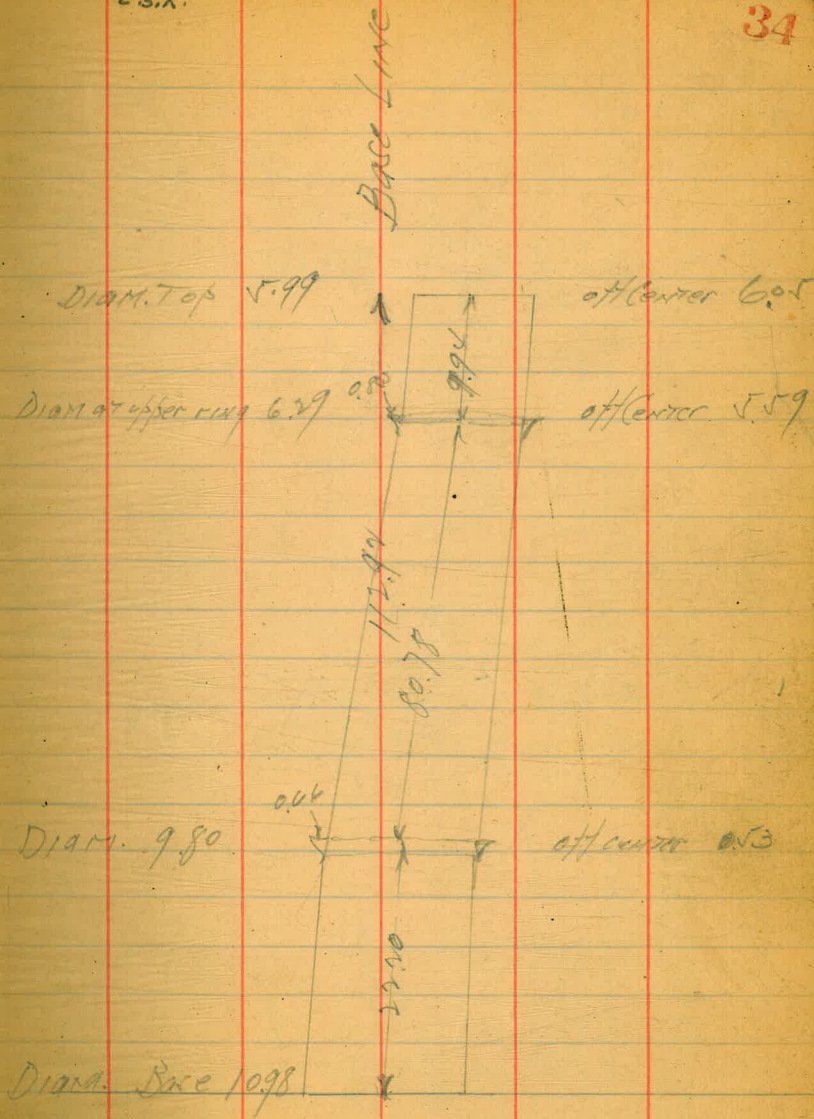 34
Base Line
Diam. Top 5.99
off Center 6.05
9.94
0.80
Diam at upper ring 6.29
off Center 5.59
112.92
80.78
0.44
Diam. 9.80
off center 0.53
22.20
Diam. Base 10.98